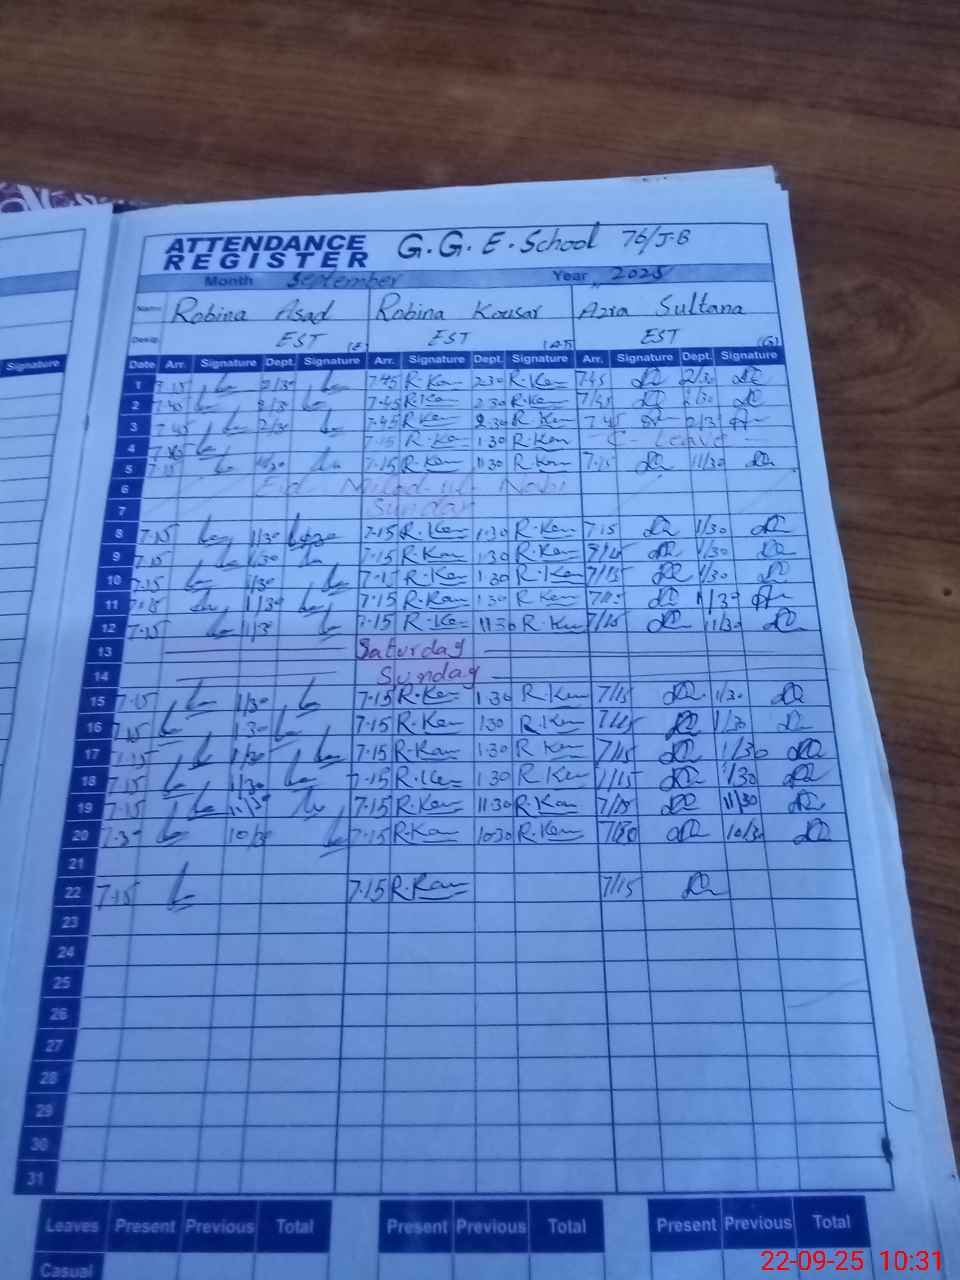 ATTENDANCE REGISTER G.G.E.School 76/J-B
Month September Year 2025
Name Robina Asad Robina Kousar Azra Sultana
Desig. EST EST EST
Signature Date Arr. Signature Dept. Signature Arr. Signature Dept. Signature Arr. Signature Dept. Signature
1 7.15 2/30 7.45 R.Kau 2.30 R.Kau 7.45 2/30
2 7.40 2/30 7.45 R.Kau 2.30 R.Kau 7/45 2/30
3 7.45 2/30 7.45 R.Kau 2.30 R.Kau 7.45 2/30
4 7.15 R.Kau 1.30 R.Kau Leave
5 7.15 11/30 7.15 R.Kau 11.30 R.Kau 7.15 11/30
6 Eid Milad-un-Nabi
7 Sunday
8 7.15 1/30 7.15 R.Kau 1.30 R.Kau 7.15 1/30
9 7.15 1/30 7.15 R.Kau 1.30 R.Kau 1/30
10 7.15 1/30 7.15 R.Kau 1.30 R.Kau 7/15 1/30
11 7.15 1/30 7.15 R.Kau 1.30 R.Kau 1/30
12 7.15 7.15 R.Kau 11.30 R.Kau 7/15 11/30
13 Saturday
14 Sunday
15 7.15 1/30 7.15 R.Kau 1.30 R.Kau 7/15 1/30
16 7.15 1.30 7.15 R.Kau 1.30 R.Kau 7/15 1/30
17 7.15 1/30 7.15 R.Kau 1.30 R.Kau 7/15 1/30
18 7.15 1/30 7.15 R.Kau 1.30 R.Kau 7/15 1/30
19 7.15 11/30 7.15 R.Kau 11.30 R.Kau 7/15 11/30
20 7.30 10/30 7.15 R.Kau 10.30 R.Kau 7/30 10/30
21
22 7.15 7.15 R.Kau 7/15
23
24
25
26
27
28
29
30
31
Leaves Present Previous Total Present Previous Total Present Previous Total
Casual
22-09-25 10:31